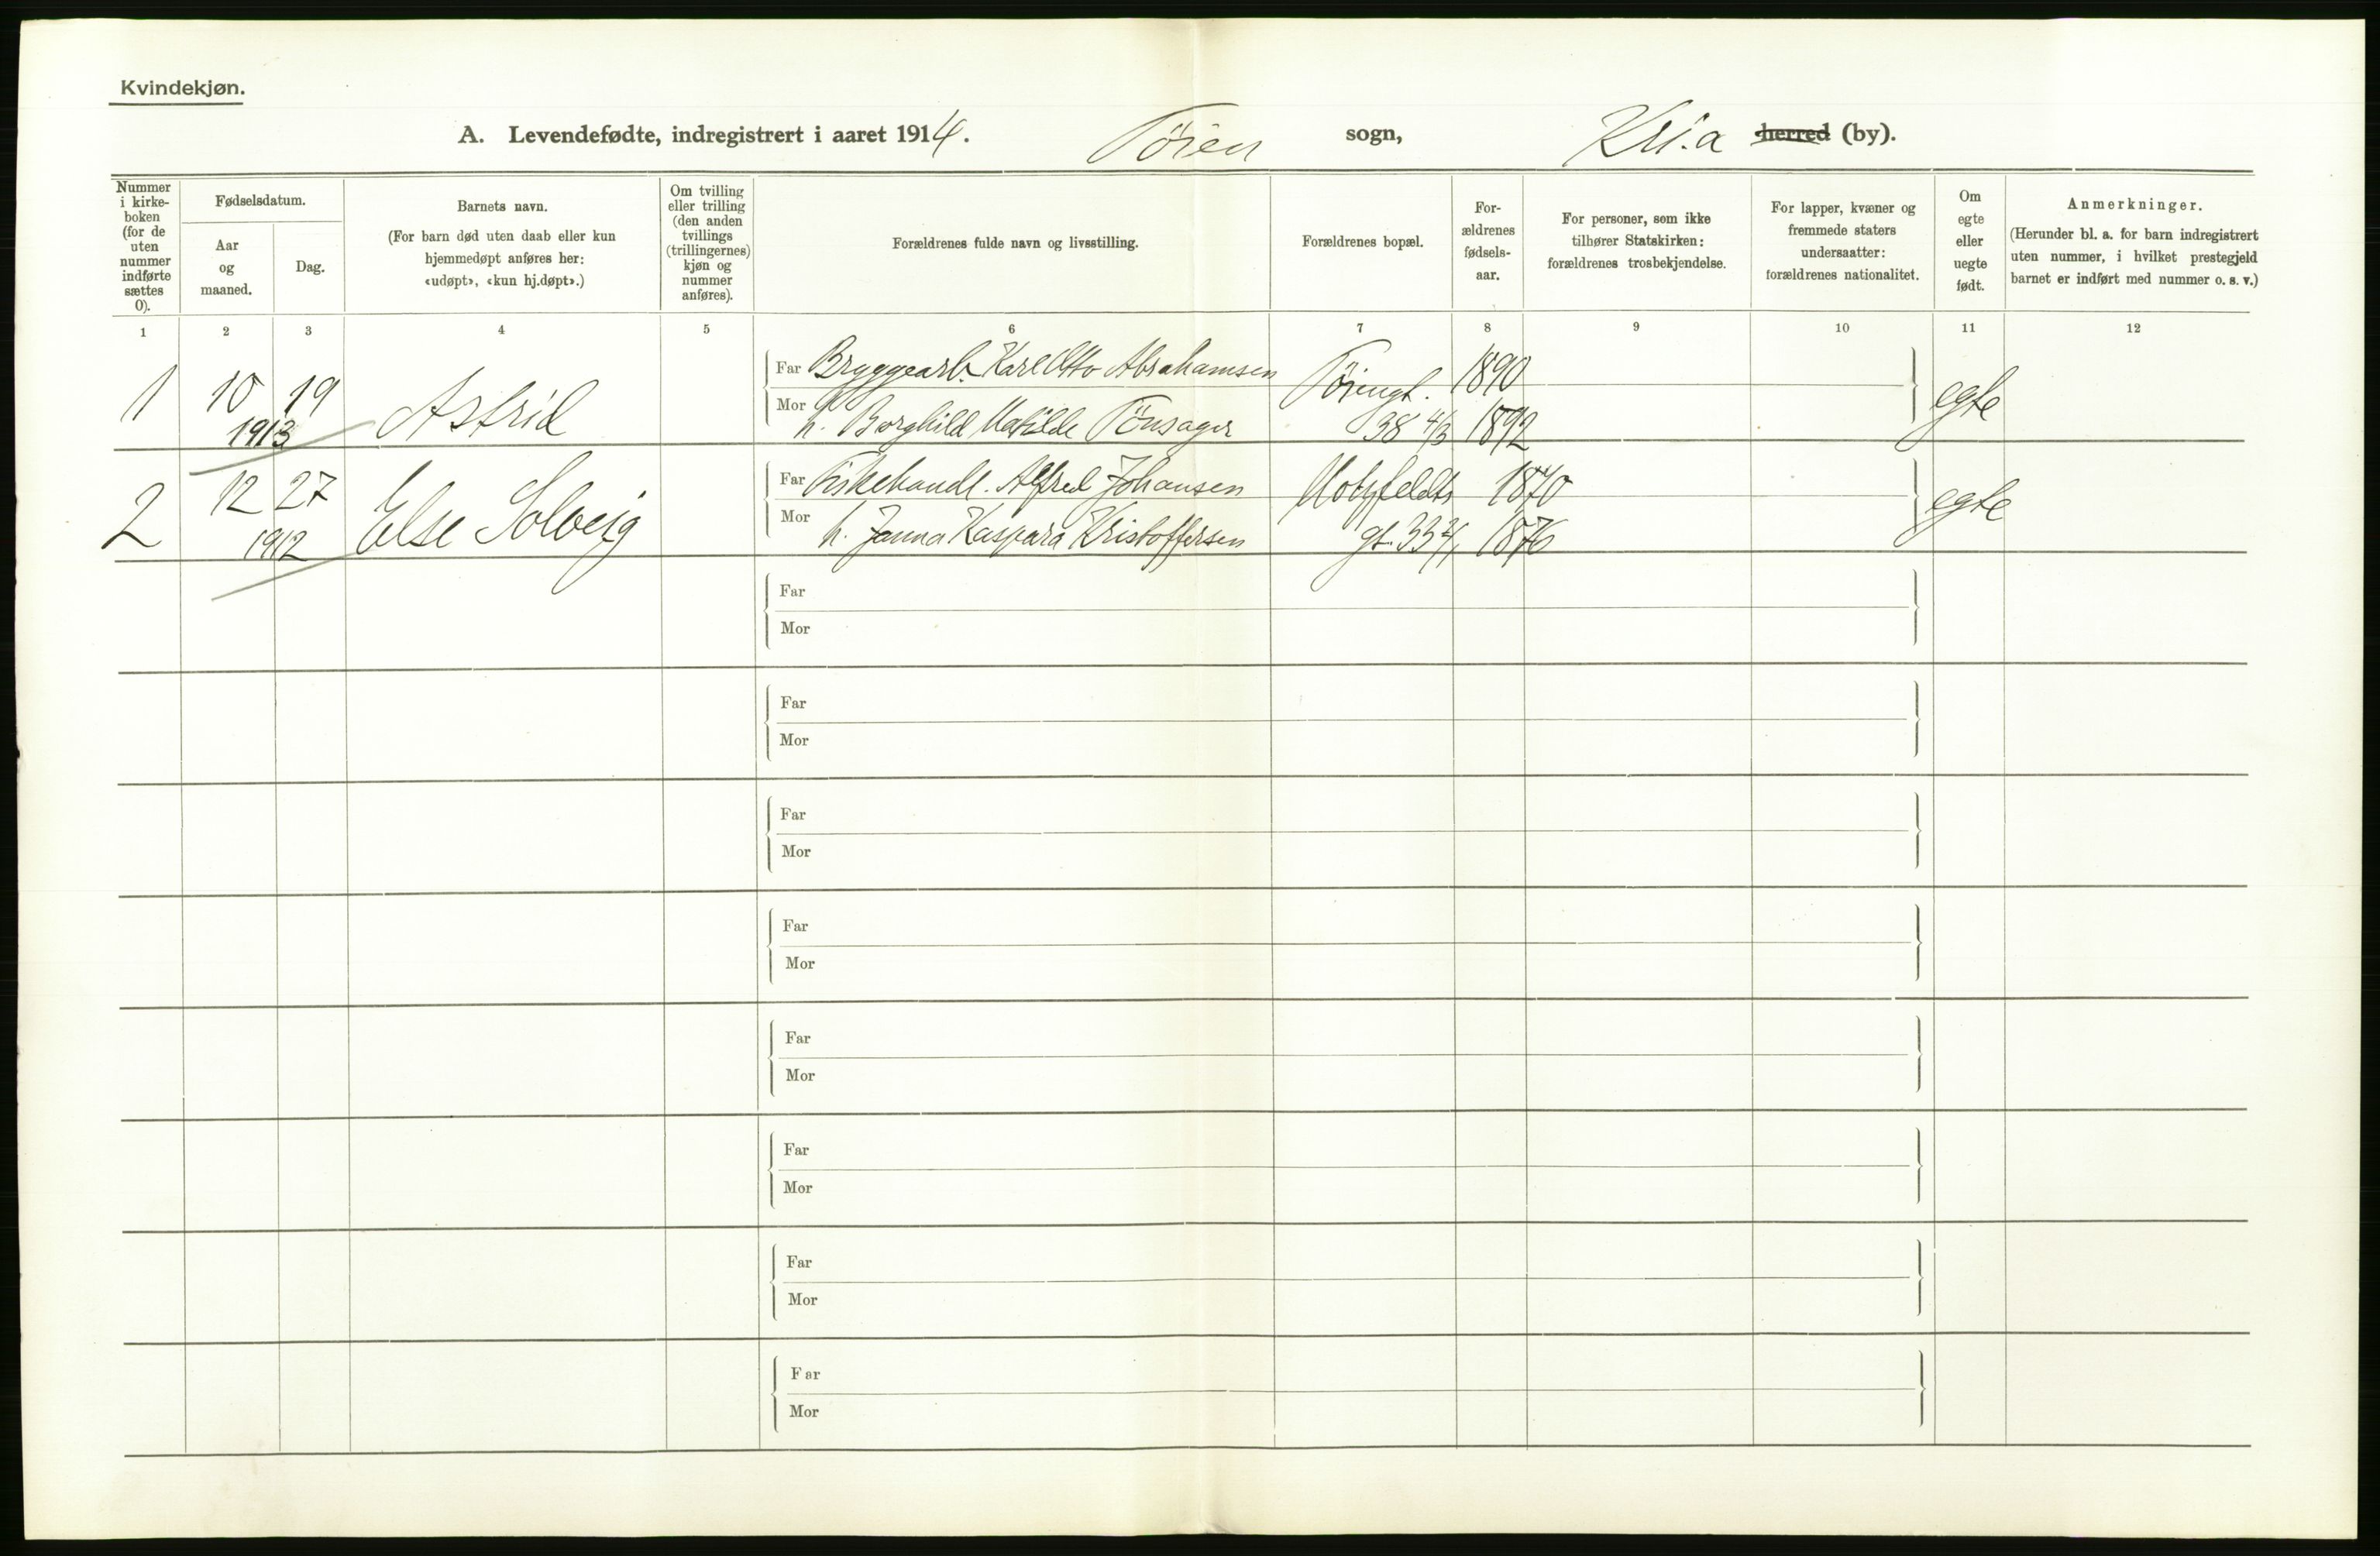 Kvindekjøn.
A. Levendefødte, indregistrert i aaret 1914. Töien sogn, Kr.a herred (by).
Nummer i kirke-boken (for de uten nummer indførte sættes 0).
Fødselsdatum.
Aar og maaned.
Dag.
Barnets navn.
(For barn død uten daab eller kun
hjemmedøpt anføres her:
«udøpt», «kun hj.døpt».)
Om tvilling
eller trilling
(den anden
tvillings
(trillingernes)
kjøn og
nummer
anføres).
Forældrenes fulde navn og livsstilling.
Forældrenes bopæl.
For-
ældrenes
fødsels-
aar.
For personer, som ikke
tilhører Statskirken:
forældrenes trosbekjendelse.
For lapper, kvæner og
fremmede staters
undersaatter:
forældrenes nationalitet.
Om
egte
eller
uegte
født.
Anmerkninger.
(Herunder bl. a. for barn indregistrert
uten nummer, i hvilket prestegjeld
barnet er indført med nummer o. s. v.)
1 2 3 4 5 6 7 8 9 10 11 12
1 10 19 Astrid Far Bryggearb. Karl Otto Abrahamsen Töiengt. 1890 egte
1913 Mor h. Borghild Matilde Tönsager 38 4/3 1892
2 12 27 Else Solveig Far Fiskehandl. Alfred Johansen Motzfeldts 1870 egte
1912 Mor h. Janna Kaspara Kristoffersen gt. 33 1876
Far
Mor
Far
Mor
Far
Mor
Far
Mor
Far
Mor
Far
Mor
Far
Mor
Far
Mor